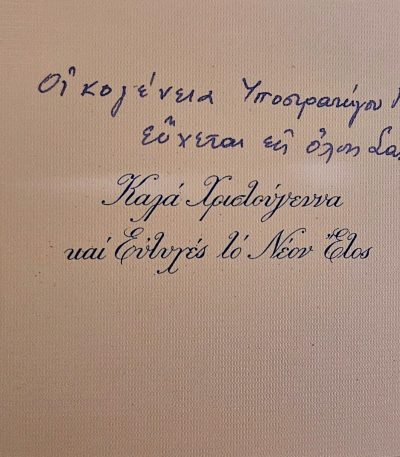 Οἰκογένεια Ὑποστρατήγου
εὔχεται εἰς ὅλους
Καλά Χριστούγεννα
καί Εὐτυχές τό Νέον Ἔτος